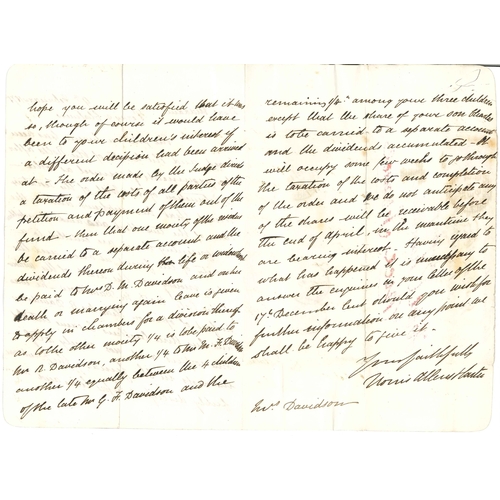 hope you will be satisfied that it was
so, though of course it would have
been to your children's interest if
a different decision had been arrived
at - The order made by the Judge directs
a taxation of the costs of all parties of the
petition and payment of them out of the
fund - then that one moiety of the residue
be carried to a separate account and the
dividends thereon during her life or widowhood
be paid to Mrs D. M. Davidson and on her
death or marrying again leave is given
to apply in chamber for a division thereof
as to the other moiety 1/4 is to be paid to
Mr R. Davidson, another 1/4 to Mr M. F. Davidson
another 1/4 equally between the 4 children
of the late Mr G. F. Davidson and the
remaining 1/4 among your three children
except that the share of your son Charles
is to be carried to a separate account
and the dividends accumulated - It
will occupy some few weeks to go through
the taxation of the costs and completion
of the order and we do not anticipate any
of the shares will be receivable before
the end of April, in the meantime they
are bearing interest - Having regard to
what has happened it is unnecessary to
answer the enquiries in your letter of the
17th December but should you wish for
further information on any point we
shall be happy to give it -
Yours faithfully
Norris Allens &
Mrs Davidson